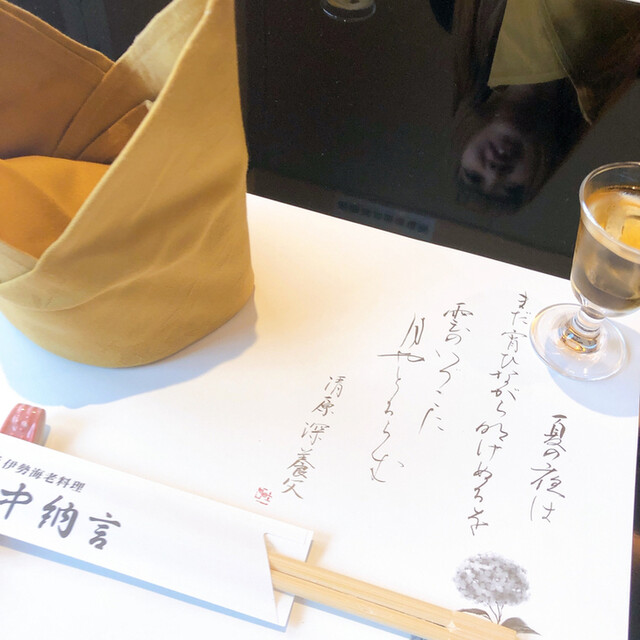 夏の夜は
まだ宵ひながら明けぬるを
雲のいつこに
月やとるらむ
清原深養父
伊勢海老料理
中納言